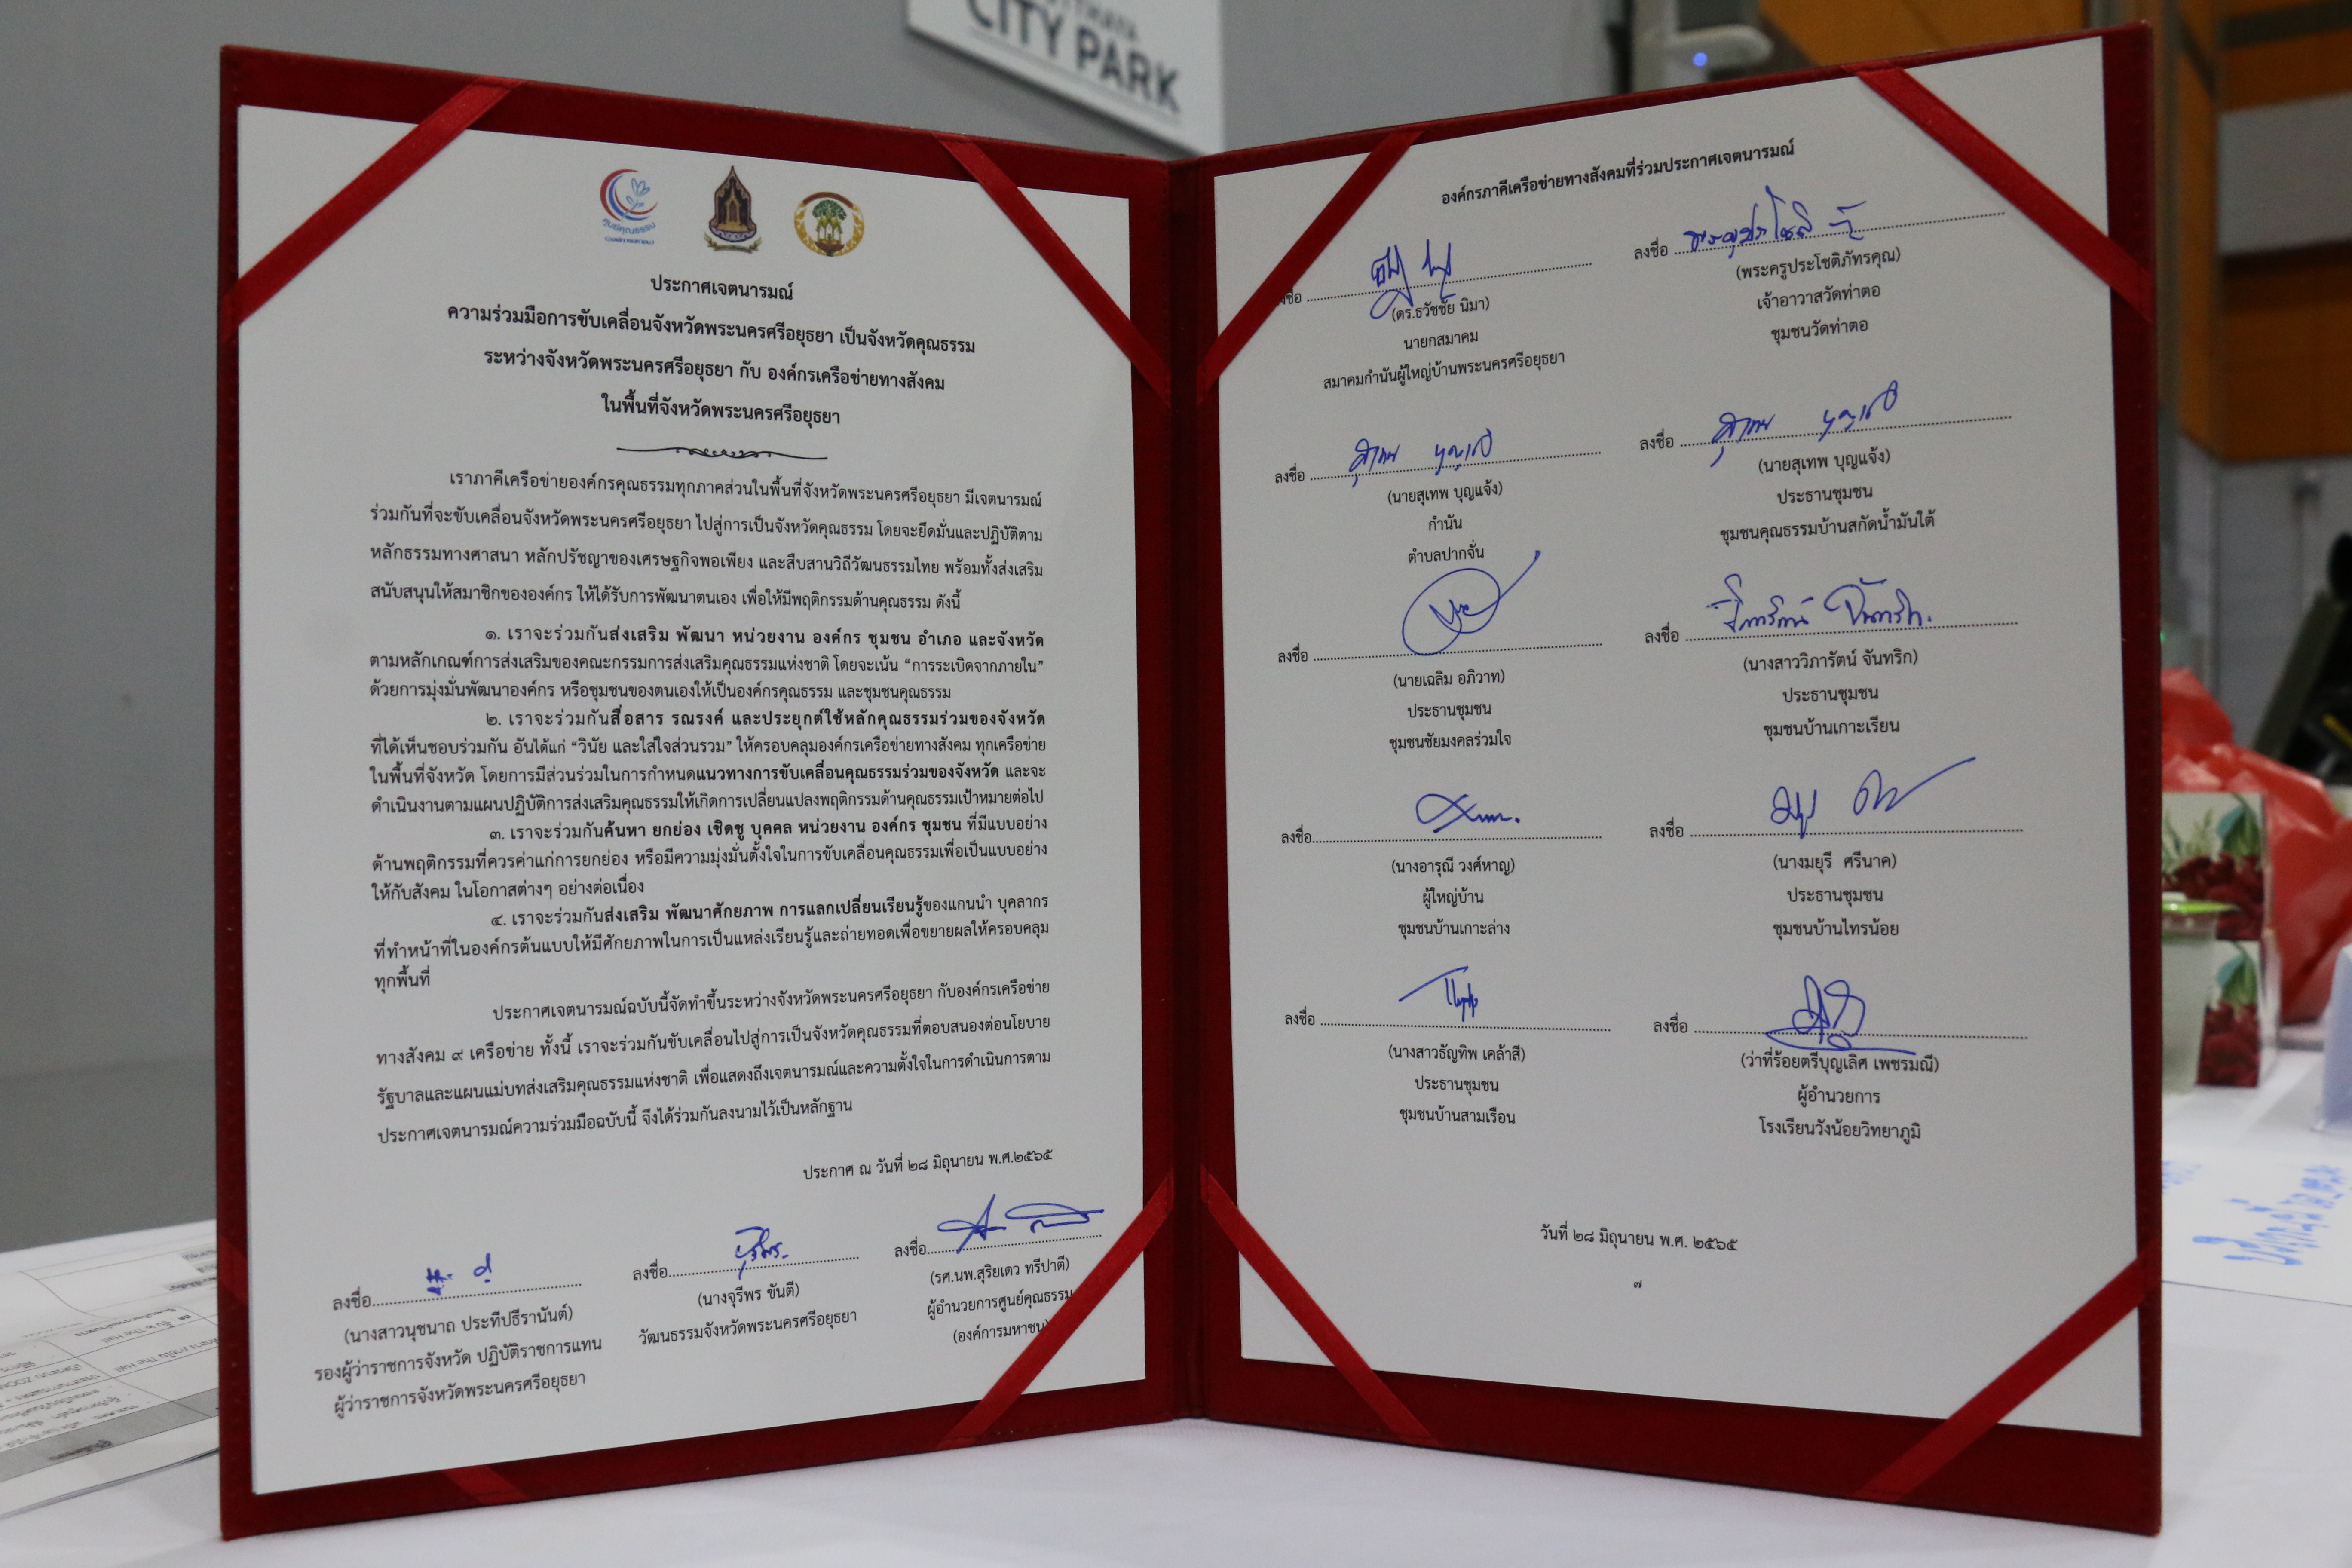 CITY PARK
ศูนย์คุณธรรม
(องค์การมหาชน)
ประกาศเจตนารมณ์
ความร่วมมือการขับเคลื่อนจังหวัดพระนครศรีอยุธยา เป็นจังหวัดคุณธรรม
ระหว่างจังหวัดพระนครศรีอยุธยา กับ องค์กรเครือข่ายทางสังคม
ในพื้นที่จังหวัดพระนครศรีอยุธยา
เราภาคีเครือข่ายองค์กรคุณธรรมทุกภาคส่วนในพื้นที่จังหวัดพระนครศรีอยุธยา มีเจตนารมณ์
ร่วมกันที่จะขับเคลื่อนจังหวัดพระนครศรีอยุธยา ไปสู่การเป็นจังหวัดคุณธรรม โดยจะยึดมั่นและปฏิบัติตาม
หลักธรรมทางศาสนา หลักปรัชญาของเศรษฐกิจพอเพียง และสืบสานวิถีวัฒนธรรมไทย พร้อมทั้งส่งเสริม
สนับสนุนให้สมาชิกขององค์กร ให้ได้รับการพัฒนาตนเอง เพื่อให้มีพฤติกรรมด้านคุณธรรม ดังนี้
๑. เราจะร่วมกันส่งเสริม พัฒนา หน่วยงาน องค์กร ชุมชน อำเภอ และจังหวัด
ตามหลักเกณฑ์การส่งเสริมของคณะกรรมการส่งเสริมคุณธรรมแห่งชาติ โดยจะเน้น “การระเบิดจากภายใน”
ด้วยการมุ่งมั่นพัฒนาองค์กร หรือชุมชนของตนเองให้เป็นองค์กรคุณธรรม และชุมชนคุณธรรม
๒. เราจะร่วมกันสื่อสาร รณรงค์ และประยุกต์ใช้หลักคุณธรรมร่วมของจังหวัด
ที่ได้เห็นชอบร่วมกัน อันได้แก่ “วินัย และใส่ใจส่วนรวม” ให้ครอบคลุมองค์กรเครือข่ายทางสังคม ทุกเครือข่าย
ในพื้นที่จังหวัด โดยการมีส่วนร่วมในการกำหนดแนวทางการขับเคลื่อนคุณธรรมร่วมของจังหวัด และจะ
ดำเนินงานตามแผนปฏิบัติการส่งเสริมคุณธรรมให้เกิดการเปลี่ยนแปลงพฤติกรรมด้านคุณธรรมเป้าหมายต่อไป
๓. เราจะร่วมกันค้นหา ยกย่อง เชิดชู บุคคล หน่วยงาน องค์กร ชุมชน ที่มีแบบอย่าง
ด้านพฤติกรรมที่ควรค่าแก่การยกย่อง หรือมีความมุ่งมั่นตั้งใจในการขับเคลื่อนคุณธรรมเพื่อเป็นแบบอย่าง
ให้กับสังคม ในโอกาสต่างๆ อย่างต่อเนื่อง
๔. เราจะร่วมกันส่งเสริม พัฒนาศักยภาพ การแลกเปลี่ยนเรียนรู้ของแกนนำ บุคลากร
ที่ทำหน้าที่ในองค์กรต้นแบบให้มีศักยภาพในการเป็นแหล่งเรียนรู้และถ่ายทอดเพื่อขยายผลให้ครอบคลุม
ทุกพื้นที่
ประกาศเจตนารมณ์ฉบับนี้จัดทำขึ้นระหว่างจังหวัดพระนครศรีอยุธยา กับองค์กรเครือข่าย
ทางสังคม ๙ เครือข่าย ทั้งนี้ เราจะร่วมกันขับเคลื่อนไปสู่การเป็นจังหวัดคุณธรรมที่ตอบสนองต่อนโยบาย
รัฐบาลและแผนแม่บทส่งเสริมคุณธรรมแห่งชาติ เพื่อแสดงถึงเจตนารมณ์และความตั้งใจในการดำเนินการตาม
ประกาศเจตนารมณ์ความร่วมมือฉบับนี้ จึงได้ร่วมกันลงนามไว้เป็นหลักฐาน
ประกาศ ณ วันที่ ๒๘ มิถุนายน พ.ศ.๒๕๖๕
ลงชื่อ
(นางสาวนุชนาถ ประทีปธีรานันต์)
รองผู้ว่าราชการจังหวัด ปฏิบัติราชการแทน
ผู้ว่าราชการจังหวัดพระนครศรีอยุธยา
ลงชื่อ
(นางจุรีพร ขันตี)
วัฒนธรรมจังหวัดพระนครศรีอยุธยา
ลงชื่อ
(รศ.นพ.สุริยเดว ทรีปาตี)
ผู้อำนวยการศูนย์คุณธรรม
(องค์การมหาชน)
องค์กรภาคีเครือข่ายทางสังคมที่ร่วมประกาศเจตนารมณ์
ลงชื่อ
(ดร.ธวัชชัย นิมา)
นายกสมาคม
สมาคมกำนันผู้ใหญ่บ้านพระนครศรีอยุธยา
ลงชื่อ
(พระครูประโชติภัทรคุณ)
เจ้าอาวาสวัดท่าตอ
ชุมชนวัดท่าตอ
ลงชื่อ สุเทพ บุญแจ้ง
(นายสุเทพ บุญแจ้ง)
กำนัน
ตำบลปากจั่น
ลงชื่อ สุเทพ บุญแจ้ง
(นายสุเทพ บุญแจ้ง)
ประธานชุมชน
ชุมชนคุณธรรมบ้านสกัดน้ำมันใต้
ลงชื่อ
(นายเฉลิม อภิวาท)
ประธานชุมชน
ชุมชนชัยมงคลร่วมใจ
ลงชื่อ วิภารัตน์ จันทริก
(นางสาววิภารัตน์ จันทริก)
ประธานชุมชน
ชุมชนบ้านเกาะเรียน
ลงชื่อ
(นางอารุณี วงศ์หาญ)
ผู้ใหญ่บ้าน
ชุมชนบ้านเกาะล่าง
ลงชื่อ
(นางมยุรี ศรีนาค)
ประธานชุมชน
ชุมชนบ้านไทรน้อย
ลงชื่อ
(นางสาวธัญทิพ เคล้าสี)
ประธานชุมชน
ชุมชนบ้านสามเรือน
ลงชื่อ
(ว่าที่ร้อยตรีบุญเลิศ เพชรมณี)
ผู้อำนวยการ
โรงเรียนวังน้อยวิทยาภูมิ
วันที่ ๒๘ มิถุนายน พ.ศ. ๒๕๖๕
๗